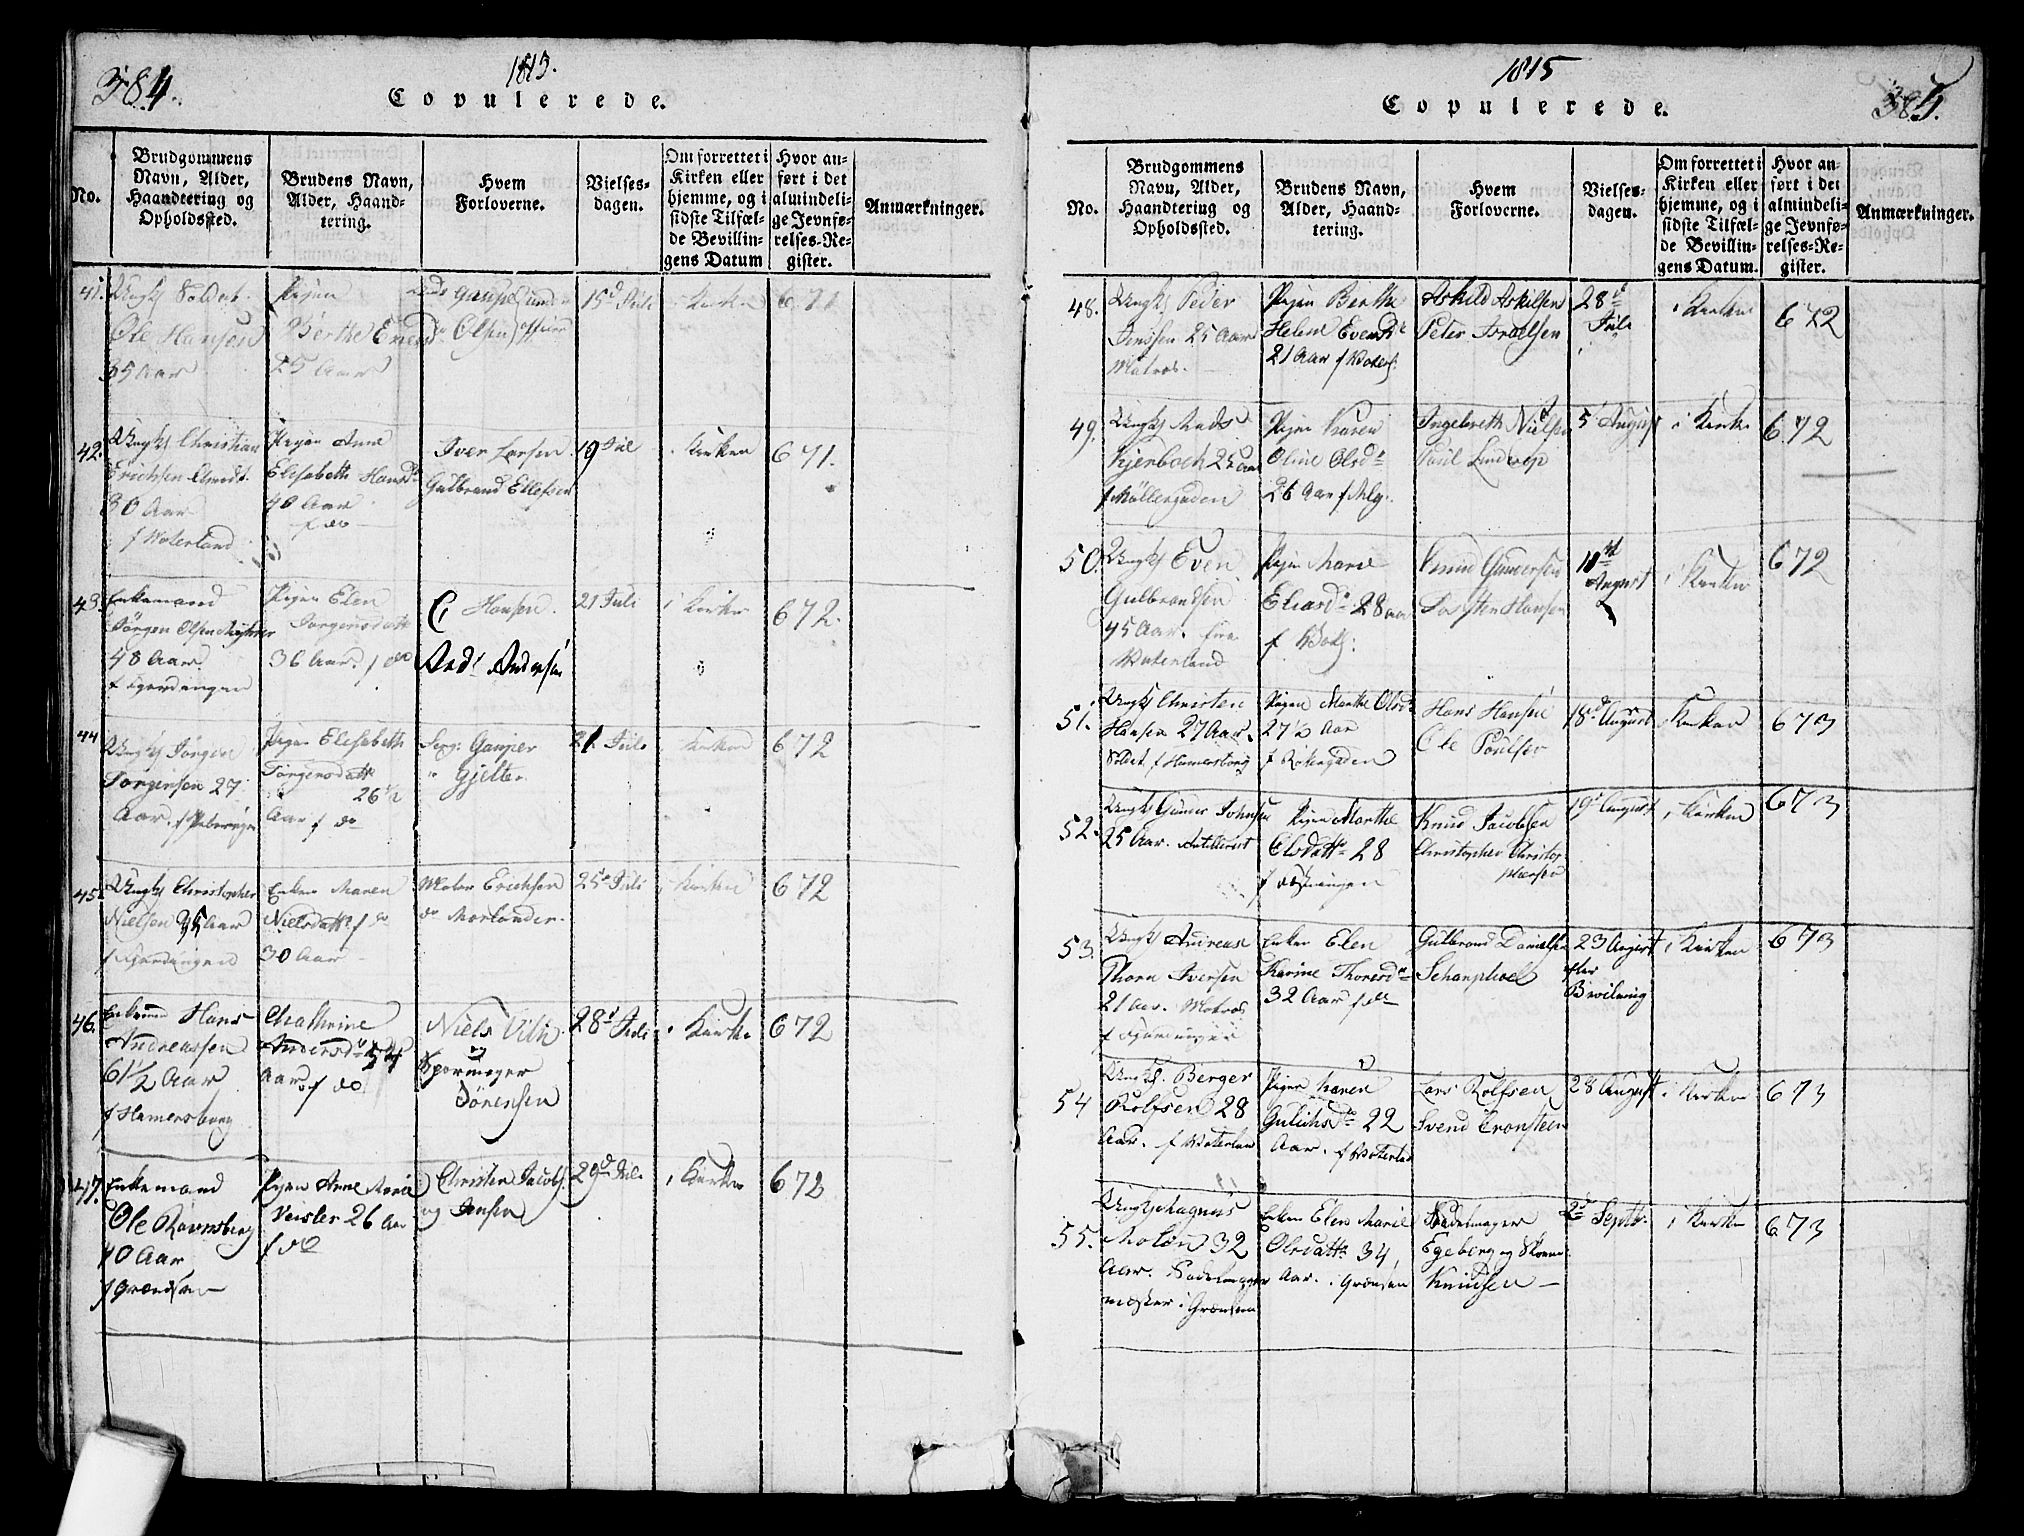 384.
1815.
Copulerede.
No.
Brudgommens
Navn, Alder,
Haandtering og
Opholdssted.
Brudens Navn,
Alder, Haand-
tering.
Hvem
Forloverne.
Vielses-
dagen.
Om forrettet i
Kirken eller
hjemme, og i
sidste Tilfæl-
de Bevillin-
gens Datum
Hvor an-
ført i det
almindeli-
ge Jevnfø-
relses-Re-
gister.
Anmærkninger.
41.
Ungk Soldat
Ole Hansen
35 Aar
Pigen
Berthe
25 Aar
Olsen
15d Juli
i Kirken
671
42.
Ungk Christian
Erichsen
30 Aar
f Vaterland
Pigen Anne
Elisabeth Hansd
40 Aar
f do
Iver Larsen
Gulbrand Ellefsen
19 Jul
i Kirken
671.
43.
Enkemand
Jørgen Olsen
48 Aar
f Fjerdingen
Pigen Elen
Jørgensdatt
36 Aar. f do
C Hansen.
And Andersen
21 Juli
i Kirken
672.
44
Ungk Jørgen
Jørgensen 27
Aar. f
Pigen Elisabeth
Jørgensdatt
26 1/2
Aar f do
Serg: Gauper
" Gjelter
21 Juli
i Kirken
672
45.
Ungk Christopher
Nielsen 35 Aar
f Fjerdingen
Enken Maren
Nielsdatt f do
30 Aar
Erichsen
do Morlander
25d Juli
i Kirken
672
46.
Enkemd Hans
Andreassen
61 1/2 Aar
f Hamersborg
Chathrine
Andersd 54
Aar f do
Niels
og
Spormager
Sørensen
28d Juli
i Kirke
672
47.
Enkemand
Ole Ravnsberg
40 Aar
f Grændsen
Pigen Anne Marie
Neisler 26 Aar
f do
Christen Jacobs
og Jensen
29d Juli
i Kirken
672
1815
385.
Copulerede.
No.
Brudgommens
Navn, Alder,
Haandtering og
Opholdssted.
Brudens Navn,
Alder, Haand-
tering.
Hvem
Forloverne.
Vielses-
dagen.
Om forrettet i
Kirken eller
hjemme, og i
sidste Tilfæl-
de Bevillin-
gens Datum.
Hvor an-
ført i det
almindeli-
ge Jevnfø-
relses-Re-
gister.
Anmærkninger.
48.
Ungk Peder
Jensen 25 Aar
Matros.
Pigen Berthe
Helene Evensd
21 Aar f Waterl:
Askild Askilsen
Peter Israelsen
28d
Juli
i Kirken
672
49.
Ungk Mads
Kjerboch 25 Aar
f Møllergaden
Pigen Karen
Oline Olsd
26 Aar f Mlg.
Ingebreth Nielsen
Poul Linderup
5 August
i Kirke
672
50.
Ungk Even
Gulbrandsen
45 Aar.
Waterland
Pigen Marie
Eliasd 28 aar
f Wat:
Knud Gundersen
Torsten Hansen
11d
August
i Kirken
672
51.
Ungk Christen
Hansen 27 Aar.
Soldat f Hamersborg
Pigen Marthe Olsd
27 1/2 Aar
f Rakergaden
Hans Hansen
Ole Poulsen
18d August
i Kirken
673
52.
Ungk Gunder Johnsen
25 Aar. Artillerist
Pigen Marthe
Olsdatt 28
f
Knud Jacobsen
Christopher Christop
hersen
19d August
i Kirken
673
53.
Ungk Andreas
Thorn Iversen
21 Aar. Matros
f Fjerdingen
Enken Elen
Karine Thoresd
32 Aar f do
Gulbrand Danielsen
23 August
efter
Bevilning
i Kirken
673
54
Ungk. Berger
Rolfsen 28
Aar. f Waterlan
Pigen Karen
Gulichsd 22
Aar. f Waterlan
Lars Rolfsen
Svend Cronsteen
28 August
i Kirken
673
55.
Ungk Magnus
Molin 32
Aar. Sadelmager
mester i Grænsen
Enken Elen Marie
Olsdatt 34
Aar. i Grænsen
Sadelmager
Egeberg og Skoem
Knudsen
2d Septb.
i Kirken
673